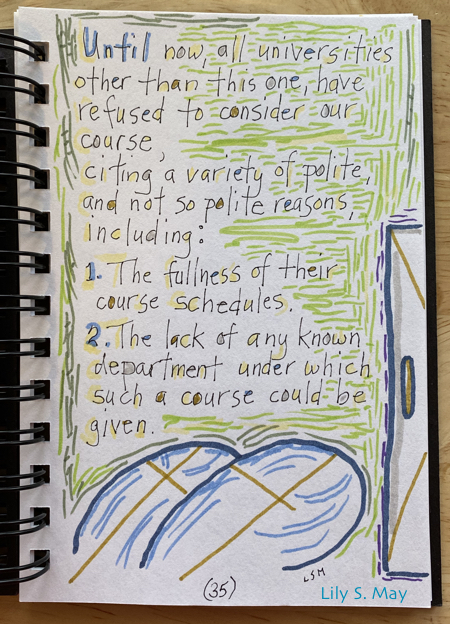 Until now, all universities
other than this one, have
refused to consider our
course,
citing a variety of polite,
and not so polite reasons,
including:
1. The fullness of their
course schedules.
2. The lack of any known
department under which
such a course could be
given.
LSM
(35)
Lily S. May